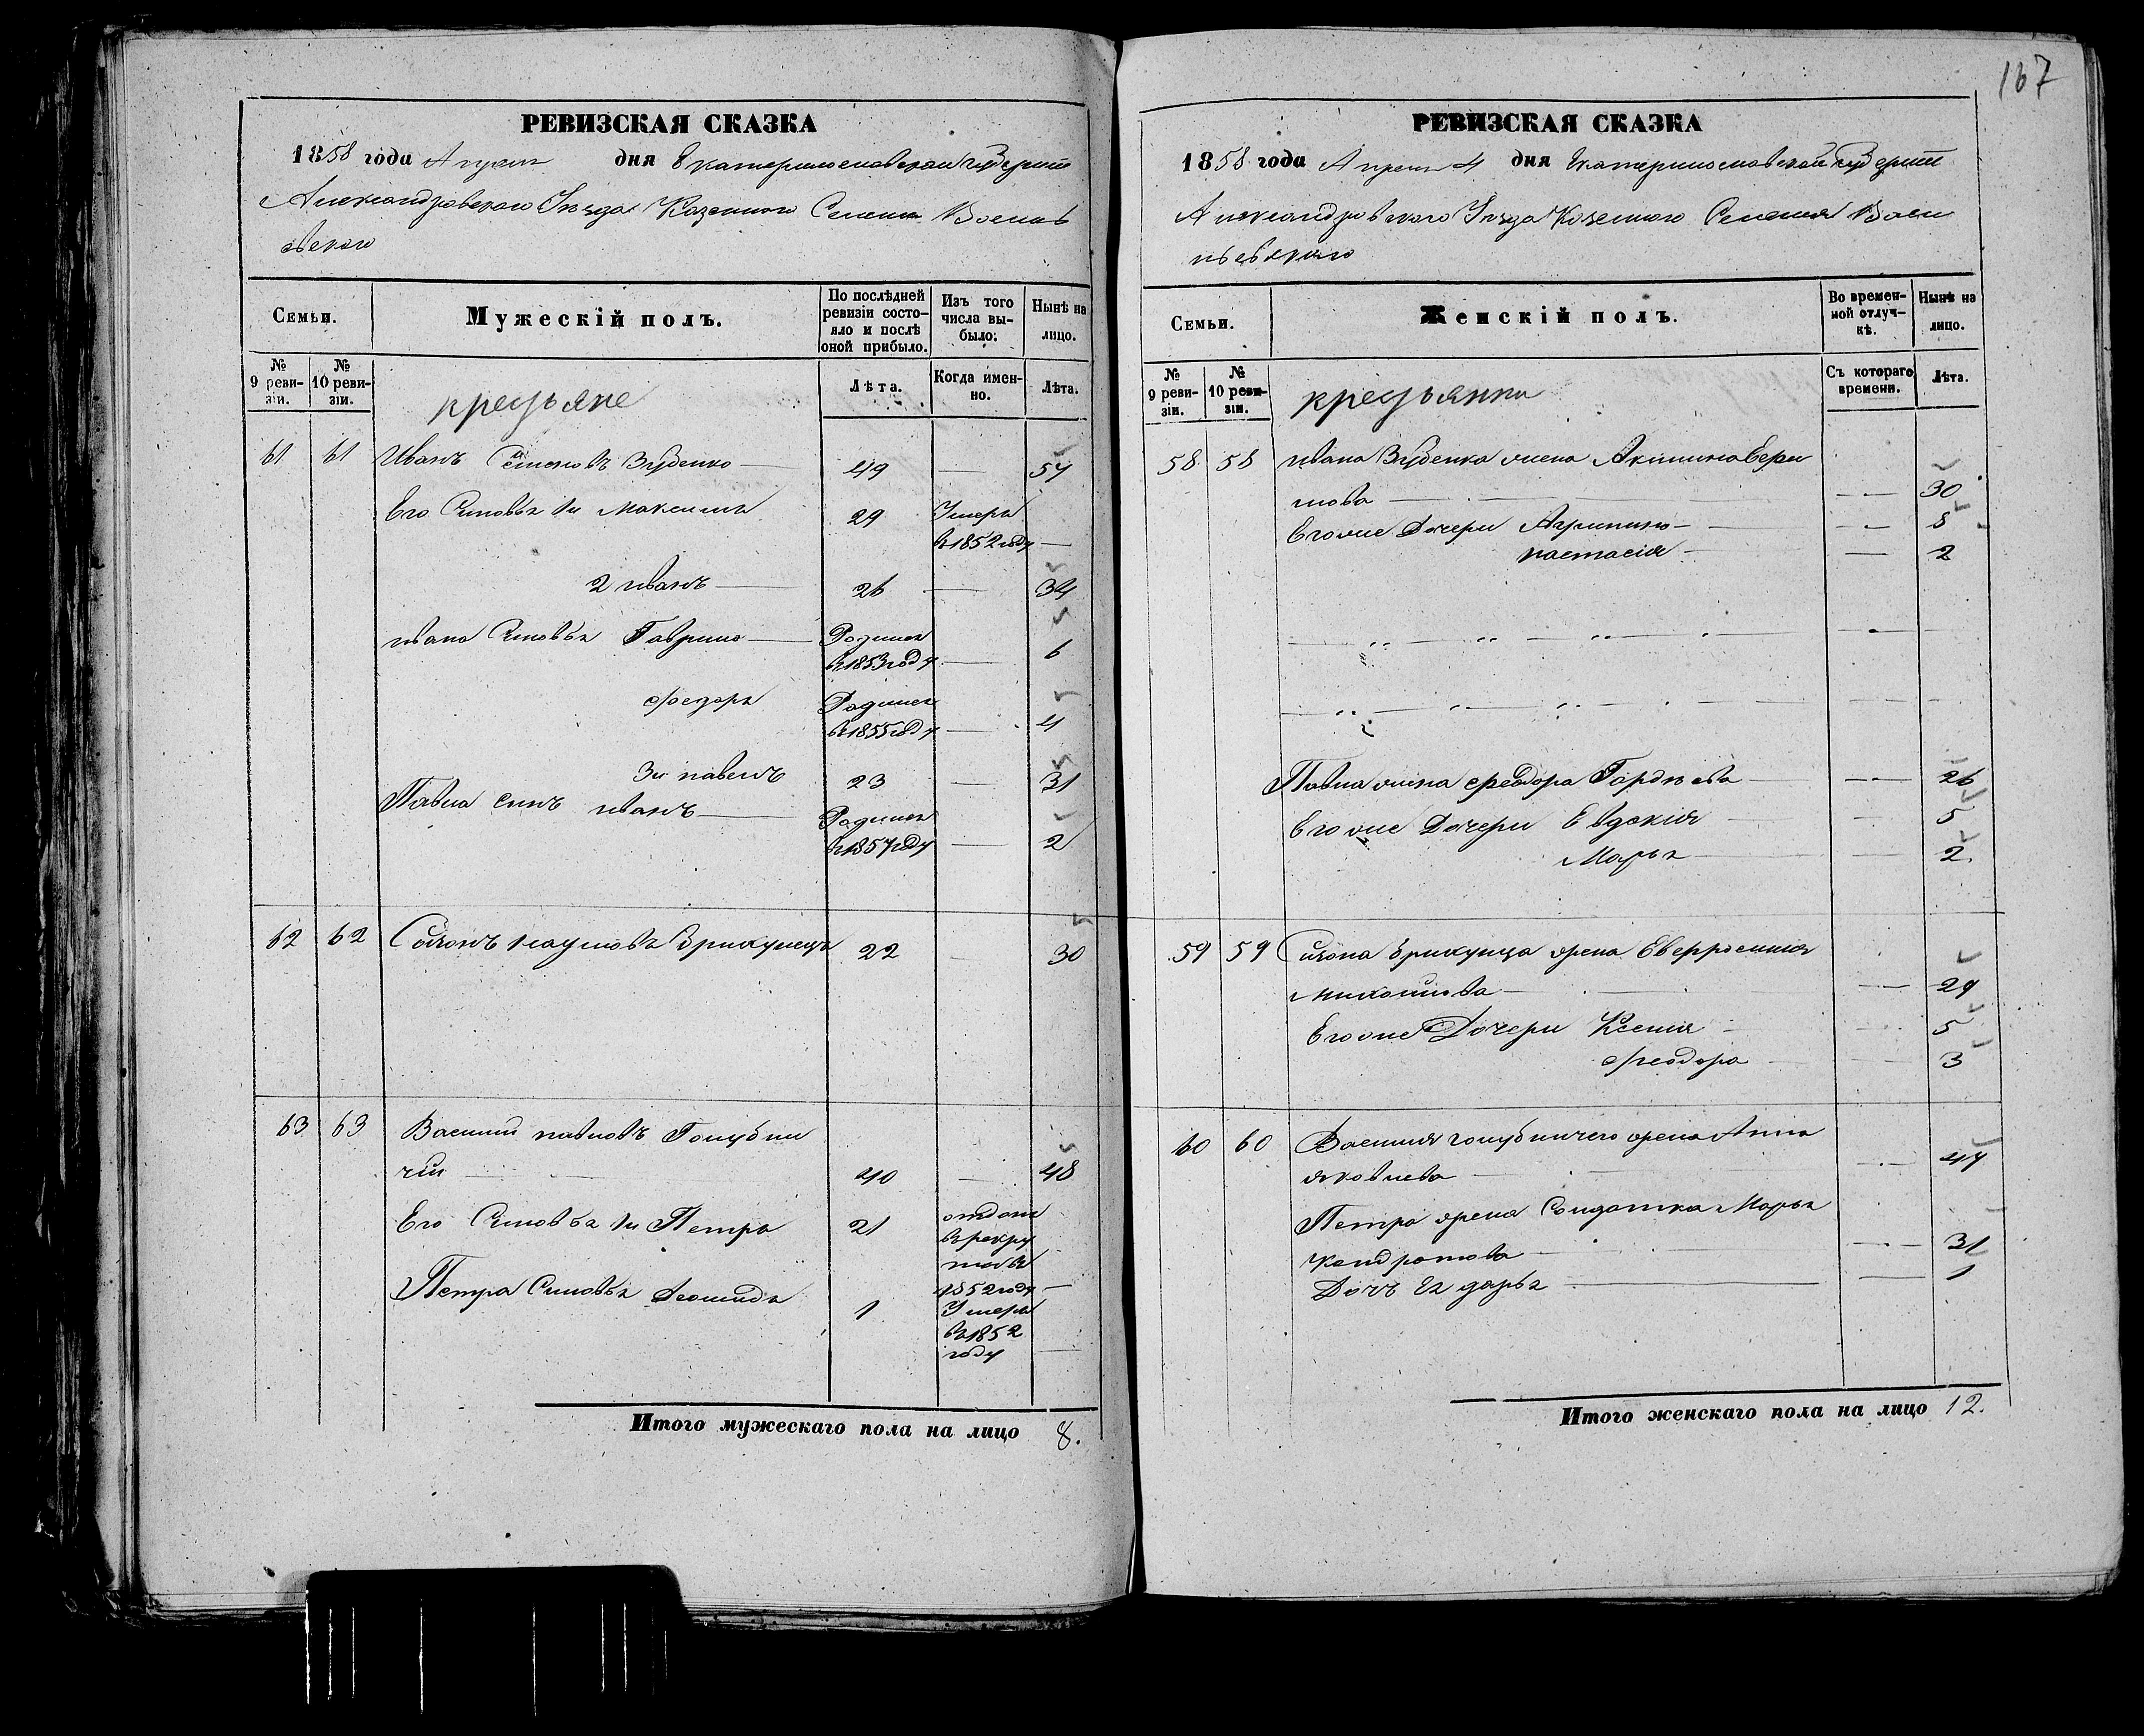 РЕВИЗСКАЯ СКАЗКА
1858 года Апреля дня Екатеринославской Губернии
Александровского Уезда Казенного Селения Васильев
скаго
Семьи. Мужескій полъ. По послѣдней ревизіи состо-яло и послѣ оной прибыло. Изъ того числа вы-было: Нынѣ на лицо.
№ 9 реви-зіи. № 10 реви-зіи. Лѣта. Когда имен-но. Лѣта.
кресьяне
61 61 Иванъ Семеновъ Зубенко 49 — 57
Его Сыновья 1й Максимъ 29 Умеръ
въ 1852 году —
2 иванъ 26 — 34
ивана Сыновья Гаврило Родился
въ 1853 году — 6
Федоръ Родился
въ 1855 году — 4
3й павелъ 23 — 31
Павла сынъ иванъ Родился
въ 1857 году — 2
62 62 наумовъ 22 — 30
63 63 Василий павловъ Голубни
чий 40 — 48
Его Сыновья 1й Петръ 21 отданъ
въ рекру
ты въ
1852 году —
Петра Сыновья 1 Умеръ
въ 1852
году —
Итого мужескаго пола на лицо 8.
167
РЕВИЗСКАЯ СКАЗКА
1858 года Апреля 4 дня Екатеринославской Губернии
Александровского Уезда Казенного Селения Васи
льевскаго
Семьи. Женскій полъ. Во времен-ной отлуч-кѣ. Нынѣ на лицо.
№ 9 реви-зіи. № 10 реви-зіи. Съ котораго времени. Лѣта.
кресьянки
58 58 ивана Зубенка жена Акилина
— 30
Егоже Дочери Агрипина — 8
настасия — 2
Павла жена Феодора Гордѣева — 26
Егоже Дочери Евдокия — 5
Марья — 2
59 59 жена
— 29
Егоже Дочери Ксения — 5
Феодора — 3
60 60 Василия голубничего жена Анна
яковлева — 47
Петра жена Солдатка Марья
кондратова — 31
Дочь Ея дарья — 1
Итого женскаго пола на лицо 12.